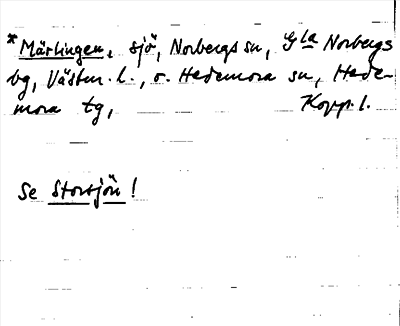 *Märlingen, sjö, Norbergs sn, Gla Norbergs
bg, Västm. l., o. Hedemora sn, Hede-
mora tg, Kopp. l.
Se Storsjön!